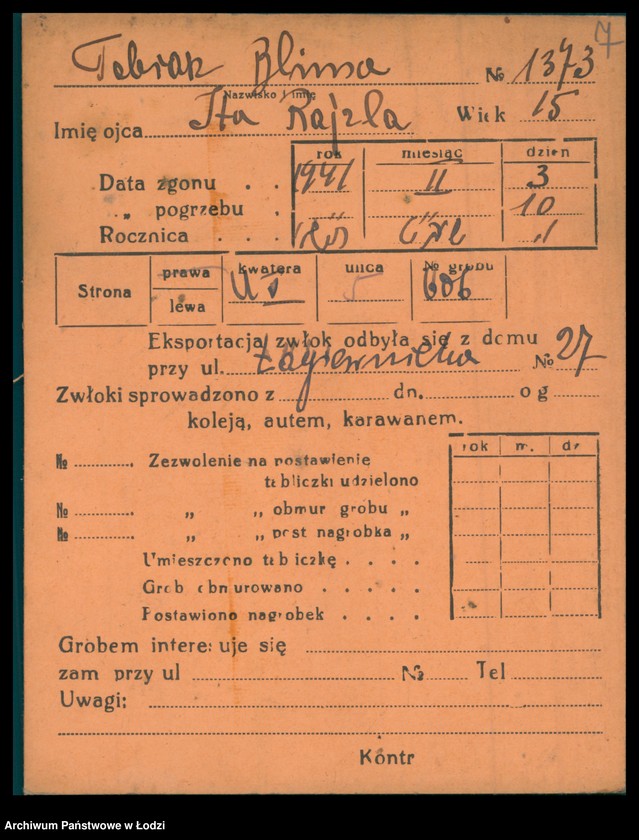 7
Tebrak Blima № 1373
Nazwisko i imię
Imię ojca Ita Rajzla Wiek 15
rok miesiąc dzień
Data zgonu . . 1941 II 3
„ pogrzebu . 10
Rocznica . . .
Strona prawa kwatera ulica № grobu
lewa
Eksportacja zwłok odbyła się z domu
przy ul. Łagiewnicka № 27
Zwłoki sprowadzono z dn. o g
koleją, autem, karawanem.
rok m. dz
№ Zezwolenie na postawienie
tabliczki udzielono
№ „ „ obmur grobu „
№ „ „ post nagrobka „
Umieszczono tabliczkę . . . .
Grób obmurowano . . . . .
Postawiono nagrobek . . . .
Grobem interesuje się
zam przy ul № Tel
Uwagi:
Kontr
Archiwum Państwowe w Łodzi